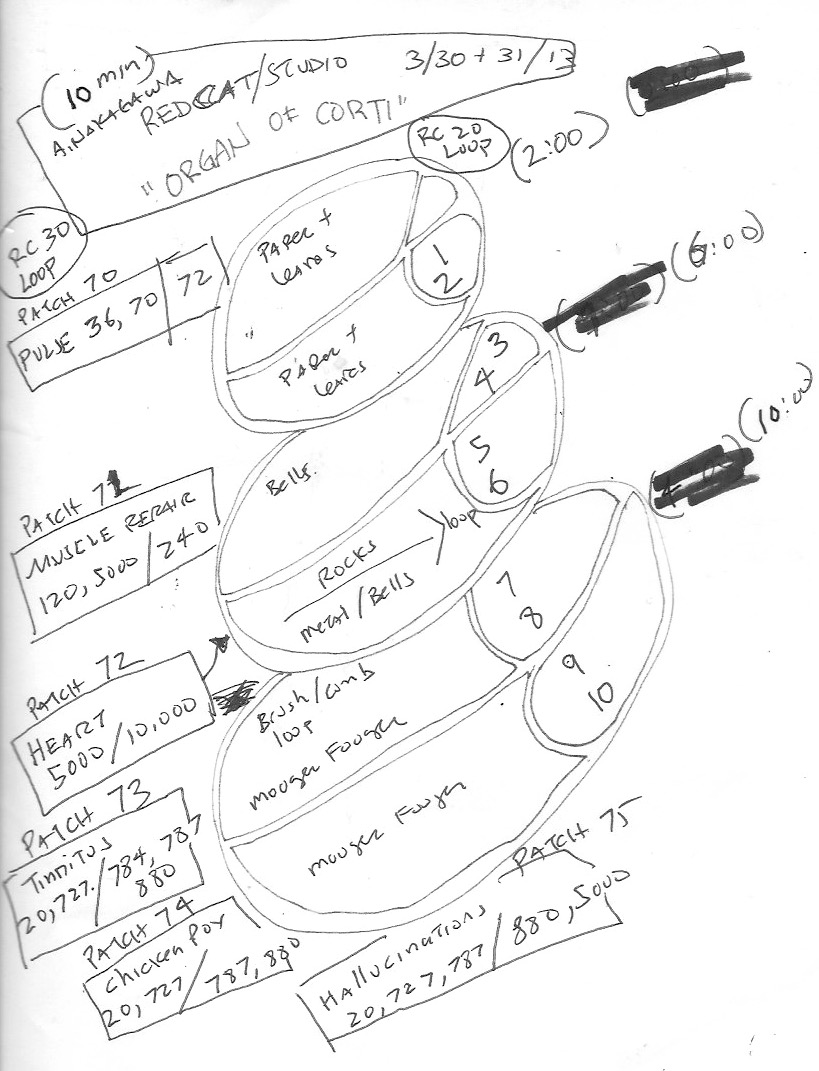 (10 min)
A. NAKAGAWA
REDCAT/STUDIO 3/30 + 31/13
"ORGAN OF CORTI"
RC 20
LOOP
(2:00)
RC 30
LOOP
PATCH 70
PULSE 36, 70 / 72
PAPER +
Leaves
1
2
"
PAPER +
Leaves
(6:00)
3
4
Bells.
5
6
(10:00)
PATCH 71
MUSCLE REPAIR
120, 5000 / 240
ROCKS
metal/Bells
loop
7
8
9
10
PATCH 72
HEART
5000 / 10,000
Brush/comb
loop
mooger Fooger
mooger Fooger
PATCH 73
Tinnitus
20,727. / 784, 787
880
PATCH 74
Chicken Pox
20,727 / 787, 880
PATCH 75
Hallucinations
20,727,787 / 880, 5000